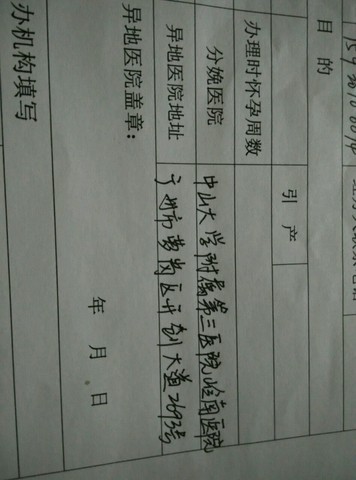 目的
引产
办理时怀孕周数
分娩医院 中山大学附属第三医院岭南医院
异地医院地址 广州市萝岗区开创大道2693号
异地医院盖章：
年 月 日
办机构填写